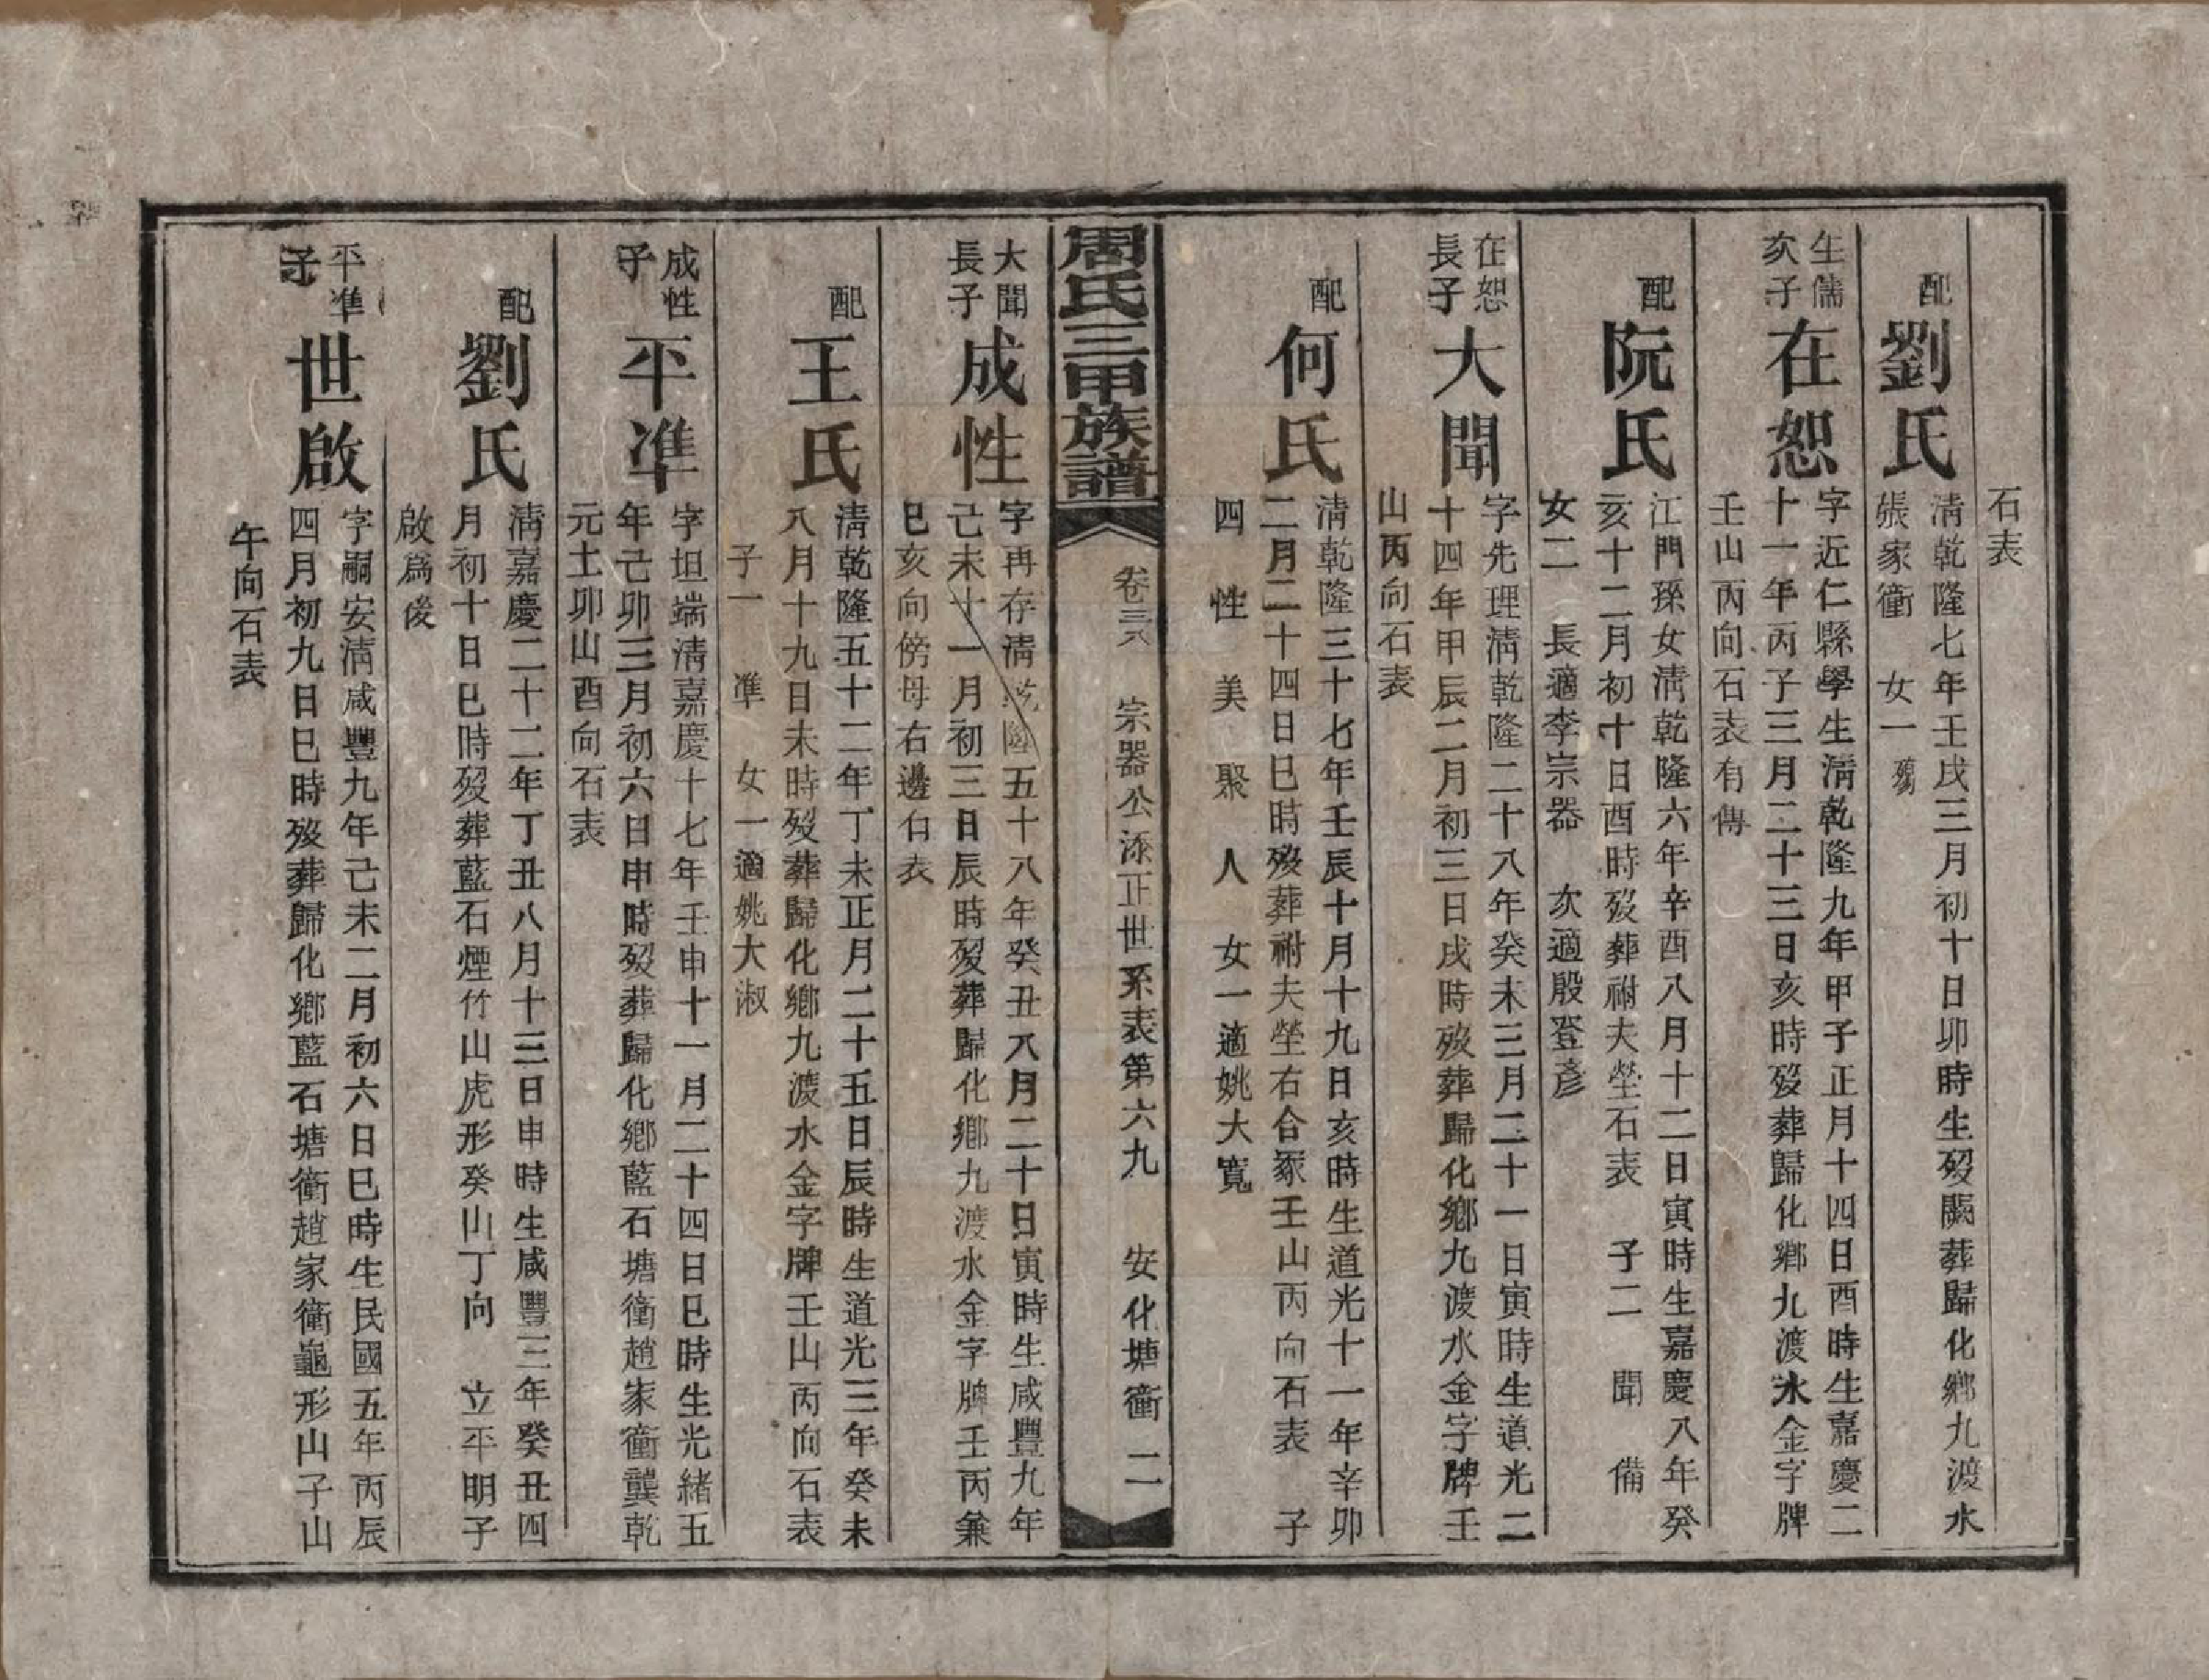 石表
配
劉氏
清乾隆七年壬戌三月初十日卯時生歿闕葬歸化鄉九渡水
張家衝　女一殤
生儒
次子
在恕
字近仁縣學生清乾隆九年甲子正月十四日酉時生嘉慶二
十一年丙子三月二十三日亥時歿葬歸化鄉九渡水金字牌
壬山丙向石表有傳
配
阮氏
江門孫女清乾隆六年辛酉八月十二日寅時生嘉慶八年癸
亥十二月初十日酉時歿葬祔夫塋石表　子二　聞　備
女二　長適李宗器　次適殷登彥
在恕
長子
大聞
字先理清乾隆二十八年癸未三月二十一日寅時生道光二
十四年甲辰二月初三日戌時歿葬歸化鄉九渡水金字牌壬
山丙向石表
配
何氏
清乾隆三十七年壬辰十月十九日亥時生道光十一年辛卯
二月二十四日巳時歿葬祔夫塋右合冢壬山丙向石表　子
四　性　美　聚　人　女一適姚大寬
周氏三甲族譜
卷三八　宗器公添正世系表第六九　安化塘衝　二
大聞
長子
成性
字再存清乾隆五十八年癸丑八月二十日寅時生咸豐九年
己未十一月初三日辰時歿葬歸化鄉九渡水金字牌壬丙兼
巳亥向傍母右邊石表
配
王氏
清乾隆五十二年丁未正月二十五日辰時生道光三年癸未
八月十九日未時歿葬歸化鄉九渡水金字牌壬山丙向石表
子一　準　女一適姚大淑
成性
子
平準
字坦端清嘉慶十七年壬申十一月二十四日巳時生光緒五
年己卯三月初六日申時歿葬歸化鄉藍石塘衝趙家衝龔乾
元土卯山酉向石表
配
劉氏
清嘉慶二十二年丁丑八月十三日申時生咸豐三年癸丑四
月初十日巳時歿葬藍石煙竹山虎形癸山丁向　立平明子
啟為後
平準
子
世啟
字嗣安清咸豐九年己未二月初六日巳時生民國五年丙辰
四月初九日巳時歿葬歸化鄉藍石塘衝趙家衝龜形山子山
午向石表